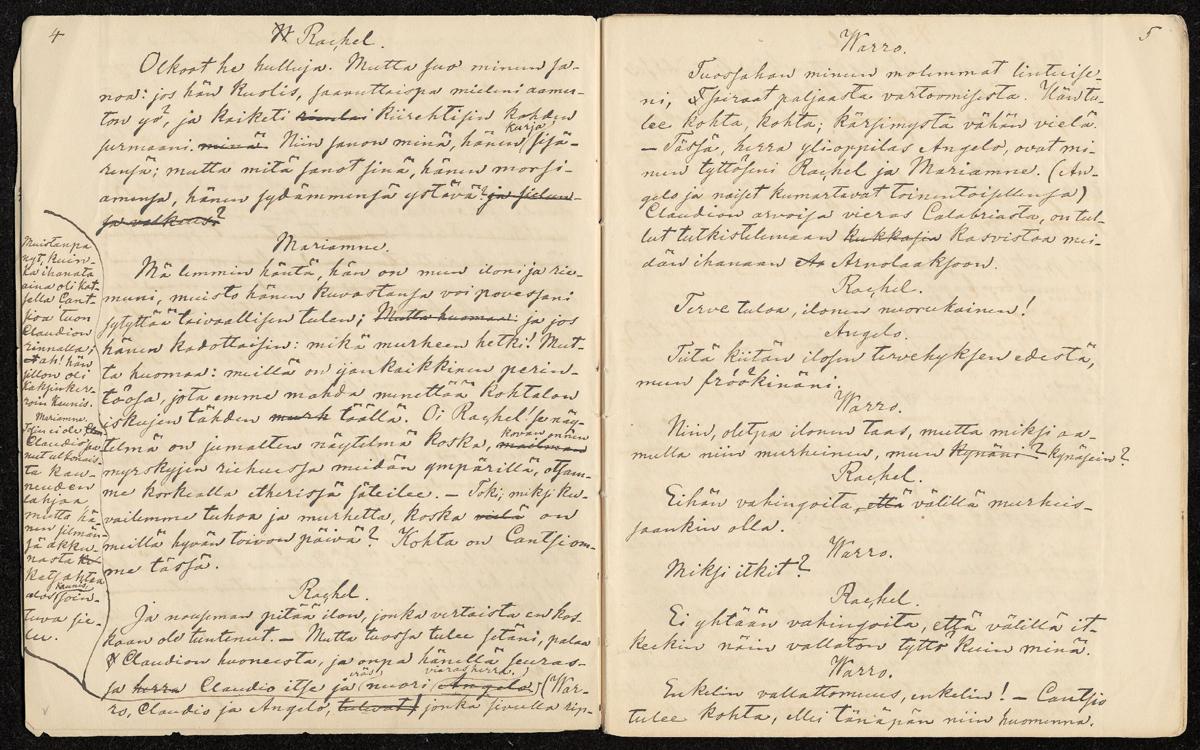 4
Rachel.
Olkoot he hulluja. Mutta suo minun sa-
noa: jos hän kuolis, saavuttaispa mieleni aamu-
ton yö, ja kaiketi kiirehtisin kohden
surmaani. minä Niin sanon minä, hänen kurja sisä-
rensä; mutta mitä sanot sinä, hänen morsi-
amensa, hänen sydämmensä ystävä? ja sielun-
sa valkeus?
Mariamne.
Mä lemmin häntä, hän on mun iloni ja rie-
muni, muisto hänen kuvastansa voi povessani
sytyttää taivaallisen tulen; Mutta huomaa: ja jos
hänen kadottaisin: mikä murheen hetki! Mut-
ta huomaa: meillä on iankaikkinen perin-
töosa, jota emme mahda menettää kohtalon
iskujen tähden murh täällä. Oi Rachel! se näy-
telmä on jumalten näytelmä koska, kovan onnen maailman
myrskyjen riehuessa meidän ympärillä, otsam-
me korkealla etherissä säteilee. — Toki; miksi ku-
vailemme tuhoa ja murhetta, koska vielä on
meillä hyvän toivon päivä? Kohta on Cantsiom-
me tässä.
Rachel.
Ja nouseman pitää ilon, jonka vertaista en kos-
kaan ole tuntenut. — Mutta tuossa tulee setäni, palaa
Claudion huoneesta, ja onpa hänellä seuras-
sa herra Claudio itse ja eräs nuori vieras herra. Angelo. (War-
ro, Claudio ja Angelo, tulevat) jonka sivulla rip-
Muistanpa
nyt, kuin-
ka ihanata
aina oli kat-
sella Cant-
sioa tuon
Claudion
rinnalla;
ah! hän
silloin oli
kaksinker-
roin kaunis.
Mariamne.
Claudio sa-
nut ulkonais-
ta kau-
neuden
lahjaa
mutta hä-
nen silmän-
sä äkku-
nasta
katsahtaa
ulos kaunis soin-
tuva sie-
lu.
5
Warro.
Tuossahan minun molemmat lintuise-
ni, Spiraat paljaasta vartoomisesta. Hän tu-
lee kohta, kohta; kärsimystä vähän vielä.
— Tässä, herra ylioppilas Angelo, ovat mi-
nun tyttöseni Rachel ja Mariamne. (An-
gelo ja naiset kumartavat toinentoisellensa)
Claudion arvoisa vieras Calabriasta, on tul-
lut tutkistelemaan kukkasia kasvistoa mei-
dän ihanaan Ar Arnolaaksoon.
Rachel.
Terve tuloa, iloinen nuorukainen!
Angelo.
Tätä kiitän iloisen tervehyksen edestä,
mun fröökinäni.
Warro.
Niin, oletpa iloinen taas, mutta miksi aa-
mulla niin murheinen, mun kynäni? kynäsein?
Rachel.
Eihän vahingoita, että välillä murheis-
saankin olla.
Warro.
Miksi itkit?
Rachel.
Ei yhtään vahingoita, että välillä it-
keekin näin vallaton tyttö kuin minä.
Warro.
Enkelin vallattomuus, enkelin! — Cantsio
tulee kohta, ellei tänäpän niin huomenna.